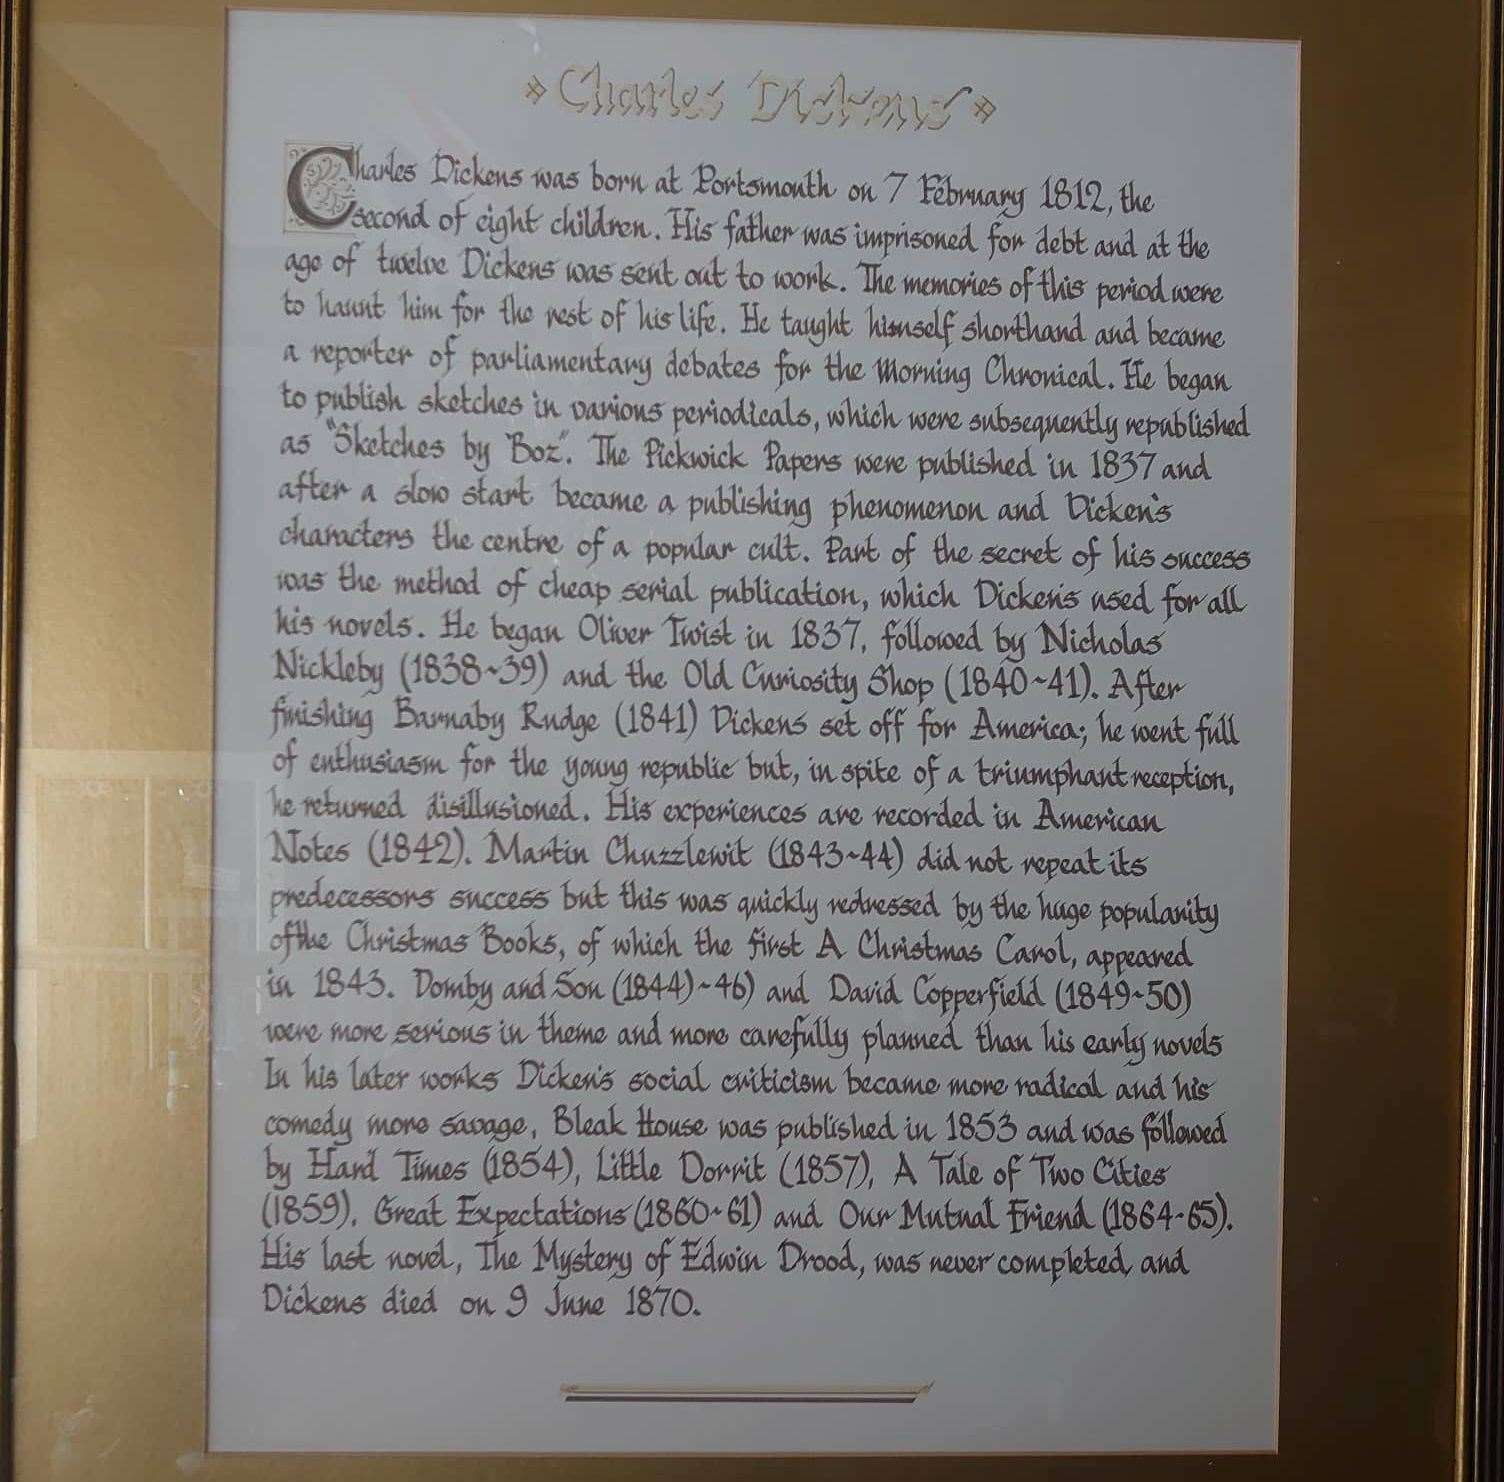 Charles Dickens
Charles Dickens was born at Portsmouth on 7 February 1812, the
second of eight children. His father was imprisoned for debt and at the
age of twelve Dickens was sent out to work. The memories of this period were
to haunt him for the rest of his life. He taught himself shorthand and became
a reporter of parliamentary debates for the Morning Chronical. He began
to publish sketches in various periodicals, which were subsequently republished
as "Sketches by Boz". The Pickwick Papers were published in 1837 and
after a slow start became a publishing phenomenon and Dicken's
characters the centre of a popular cult. Part of the secret of his success
was the method of cheap serial publication, which Dicken's used for all
his novels. He began Oliver Twist in 1837, followed by Nicholas
Nickleby (1838~39) and the Old Curiosity Shop (1840~41). After
finishing Barnaby Rudge (1841) Dickens set off for America; he went full
of enthusiasm for the young republic but, in spite of a triumphant reception,
he returned disillusioned. His experiences are recorded in American
Notes (1842). Martin Chuzzlewit (1843~44) did not repeat its
predecessors success but this was quickly redressed by the huge popularity
of the Christmas Books, of which the first A Christmas Carol, appeared
in 1843. Domby and Son (1844)~46) and David Copperfield (1849~50)
were more serious in theme and more carefully planned than his early novels
In his later works Dicken's social criticism became more radical and his
comedy more savage, Bleak House was published in 1853 and was followed
by Hard Times (1854), Little Dorrit (1857), A Tale of Two Cities
(1859), Great Expectations (1860~61) and Our Mutual Friend (1864-65).
His last novel, The Mystery of Edwin Drood, was never completed, and
Dickens died on 9 June 1870.